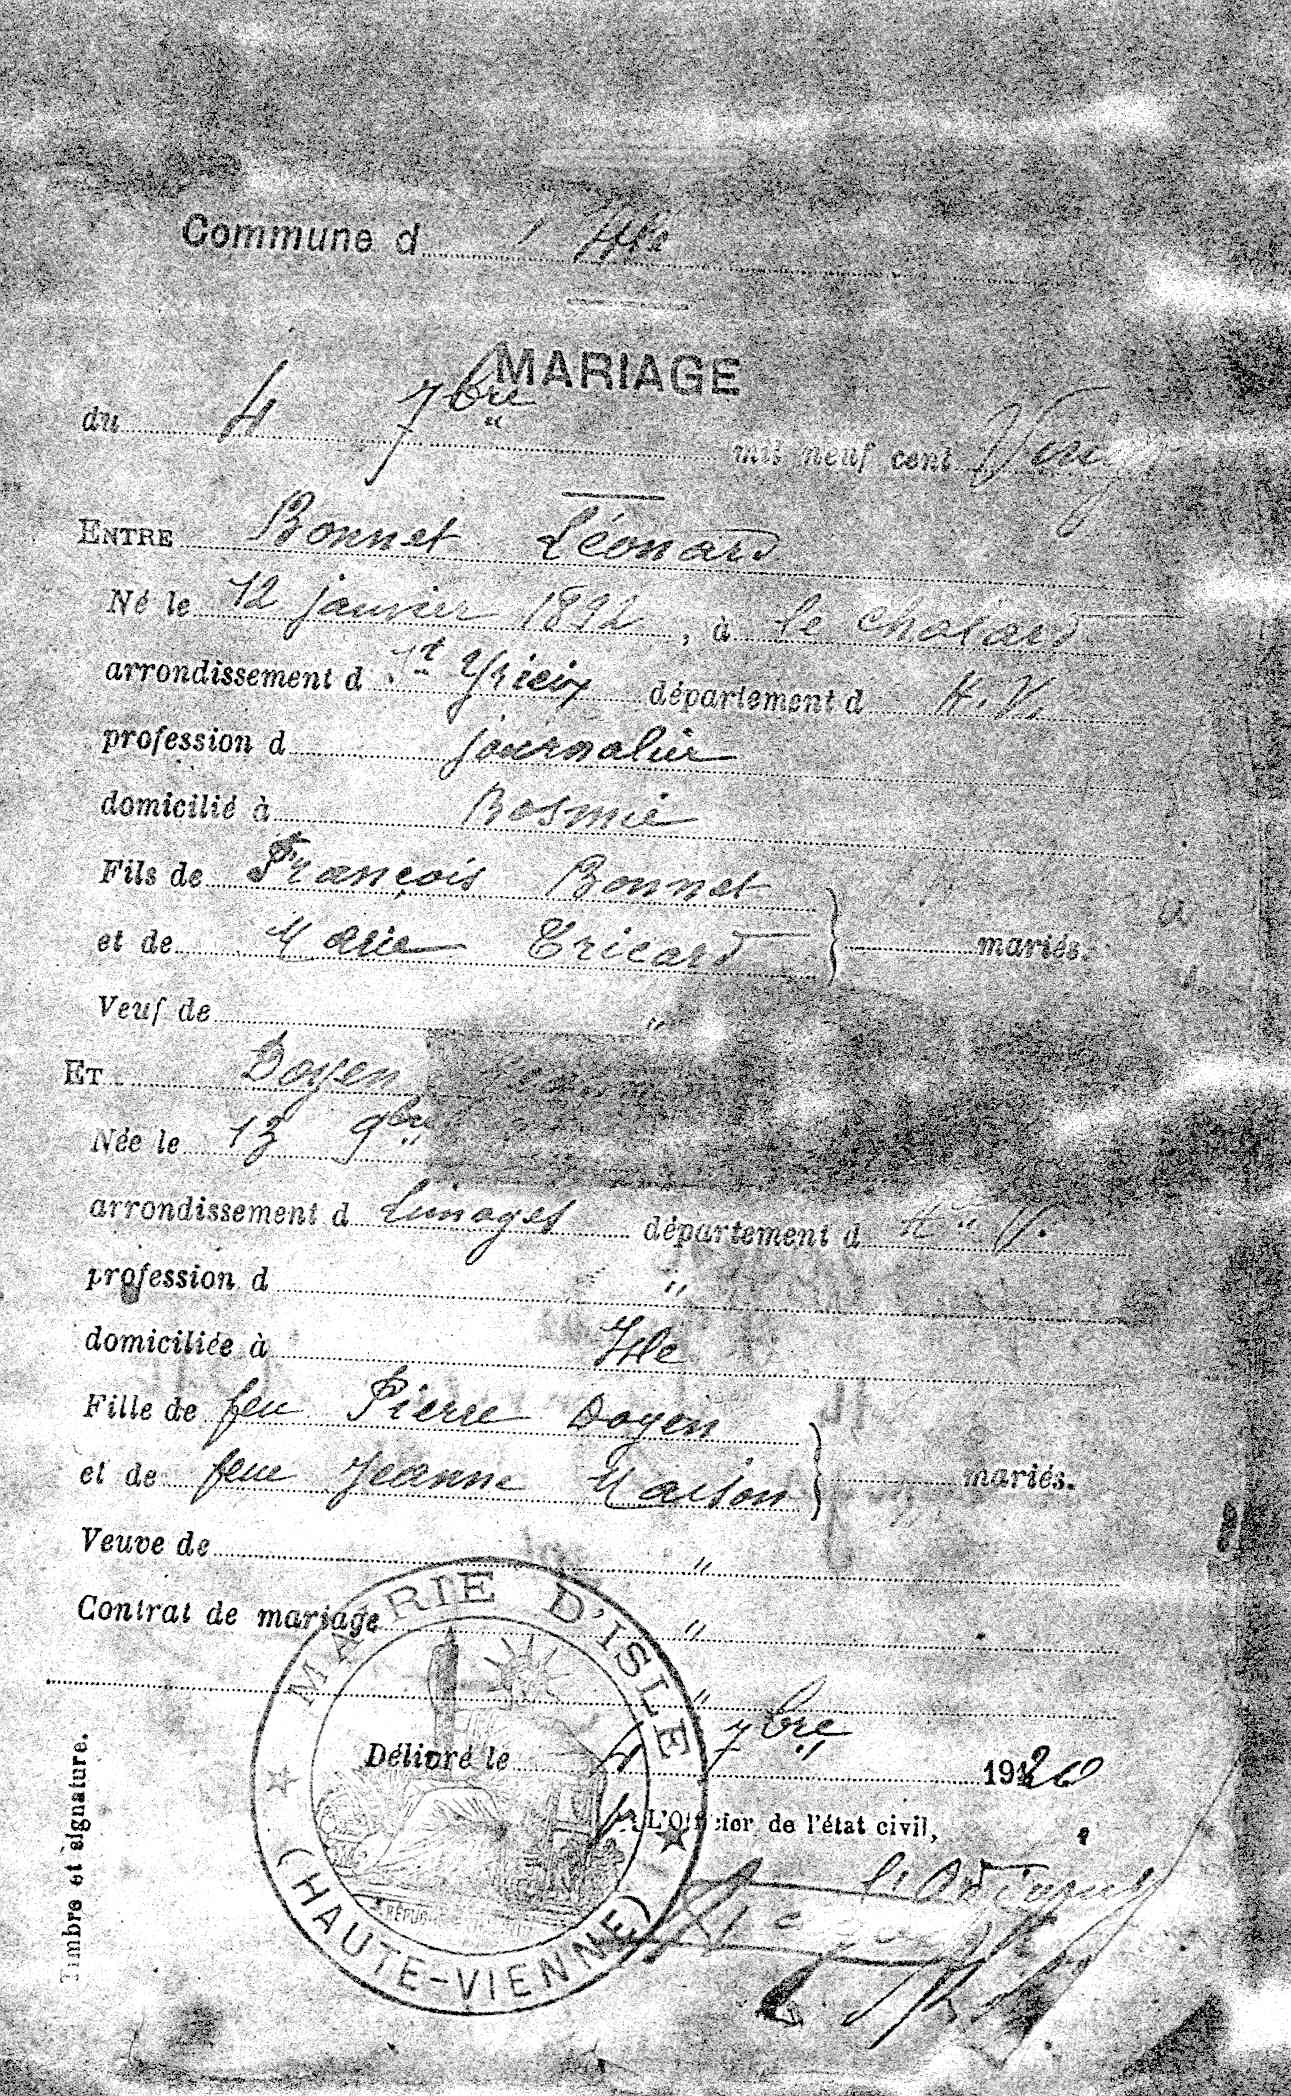 Commune d' Isle
MARIAGE
du 4 7bre mil neuf cent Vingt
ENTRE Bonnet Léonard
Né le 12 janvier 1892, à le Chalard
arrondissement d St Yrieix département d H.V.
profession d journalier
domicilié à Bosmie
Fils de François Bonnet
et de Marie Tricard mariés.
Veuf de "
ET Doyen
Née le 13 9bre
arrondissement d Limoges département d Hte V.
profession d "
domiciliée à Isle
Fille de feu Pierre Doyen
et de feue Jeanne Maison mariés.
Veuve de "
Contrat de mariage "
"
Délivré le 4 7bre 1920
L'Officier de l'état civil,
l'Adjoint
Timbre et signature.
MAIRIE D'ISLE
(HAUTE-VIENNE)